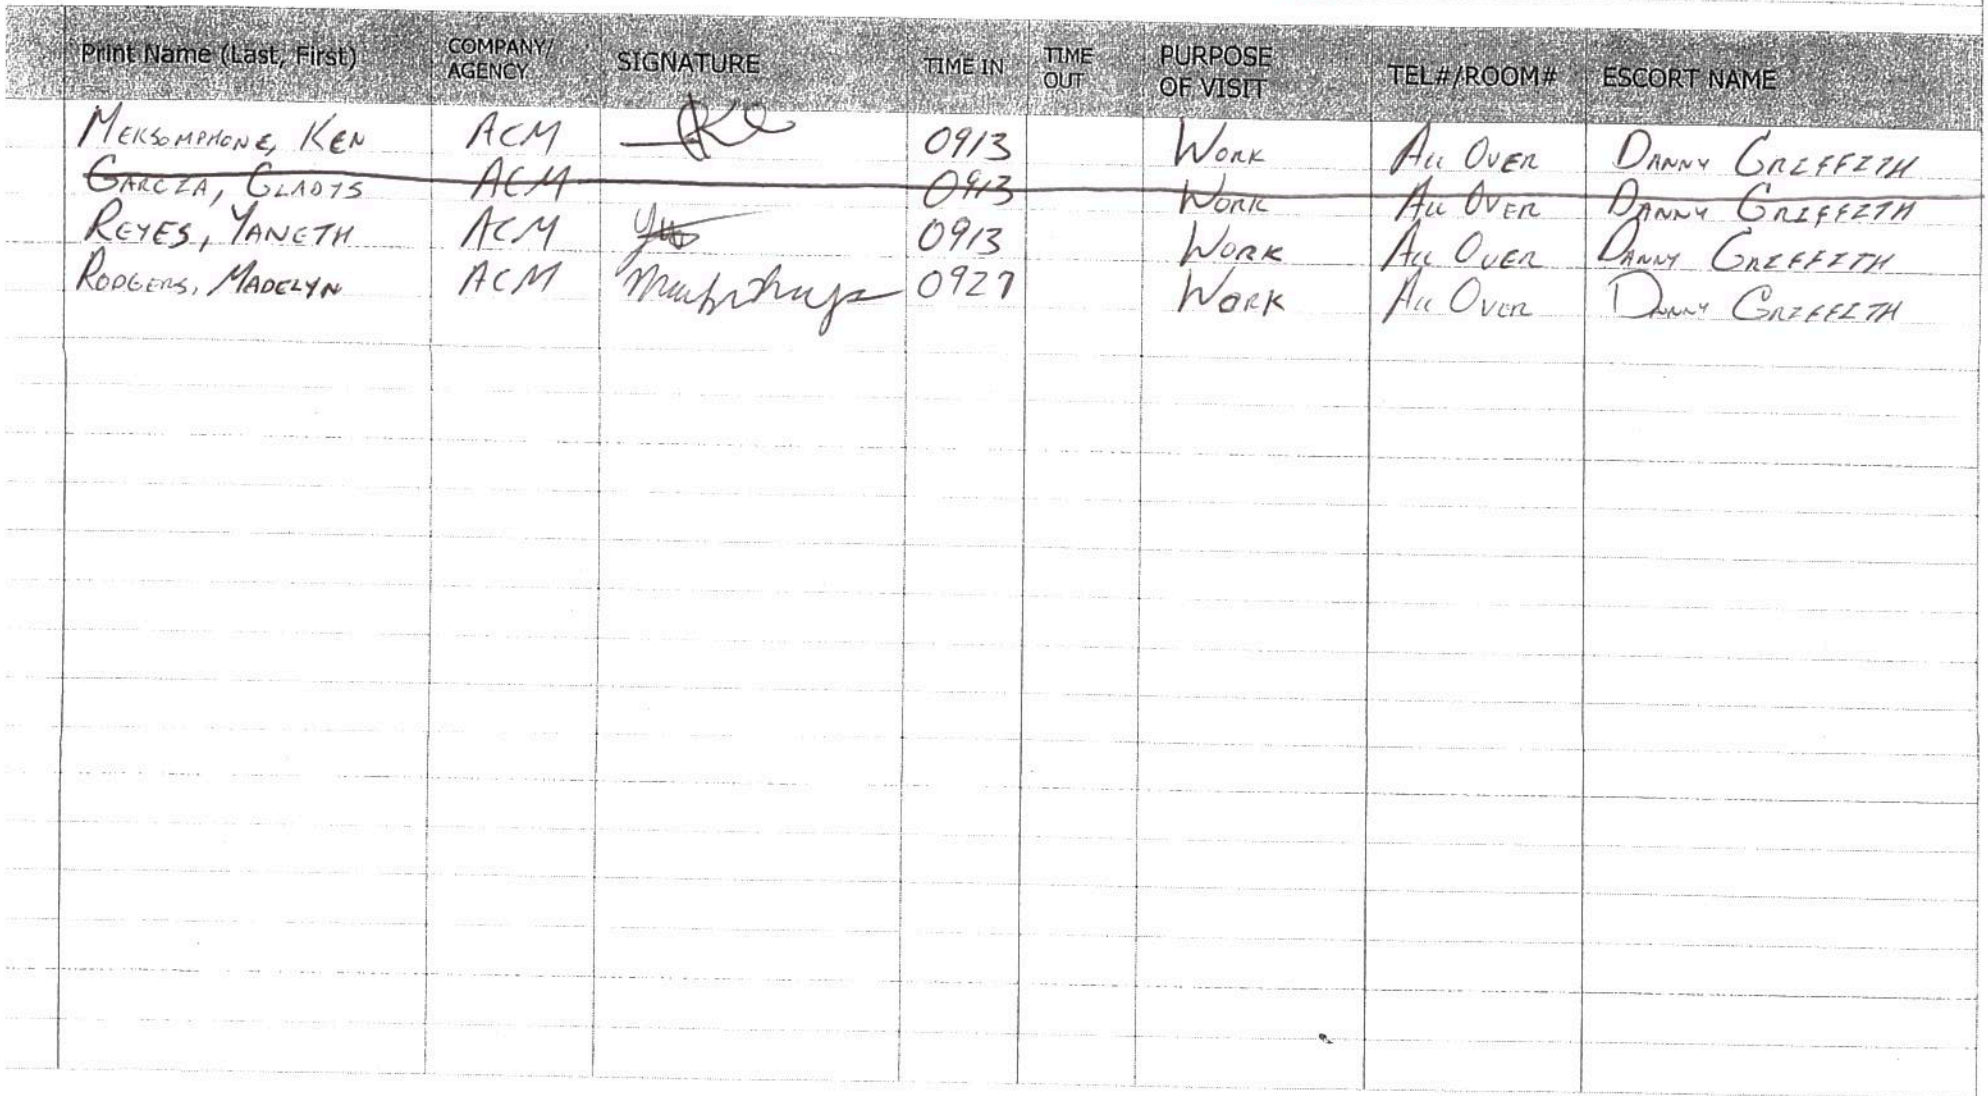 Print Name (Last, First) COMPANY/ AGENCY SIGNATURE TIME IN TIME OUT PURPOSE OF VISIT TEL#/ROOM# ESCORT NAME
MEKSOMPHONE, KEN ACM 0913 WORK ALL OVER DANNY GRIFFITH
GARCIA, GLADYS ACM 0913 WORK ALL OVER DANNY GRIFFITH
REYES, YANETH ACM 0913 WORK ALL OVER DANNY GRIFFITH
RODGERS, MADELYN ACM 0927 WORK ALL OVER DANNY GRIFFITH